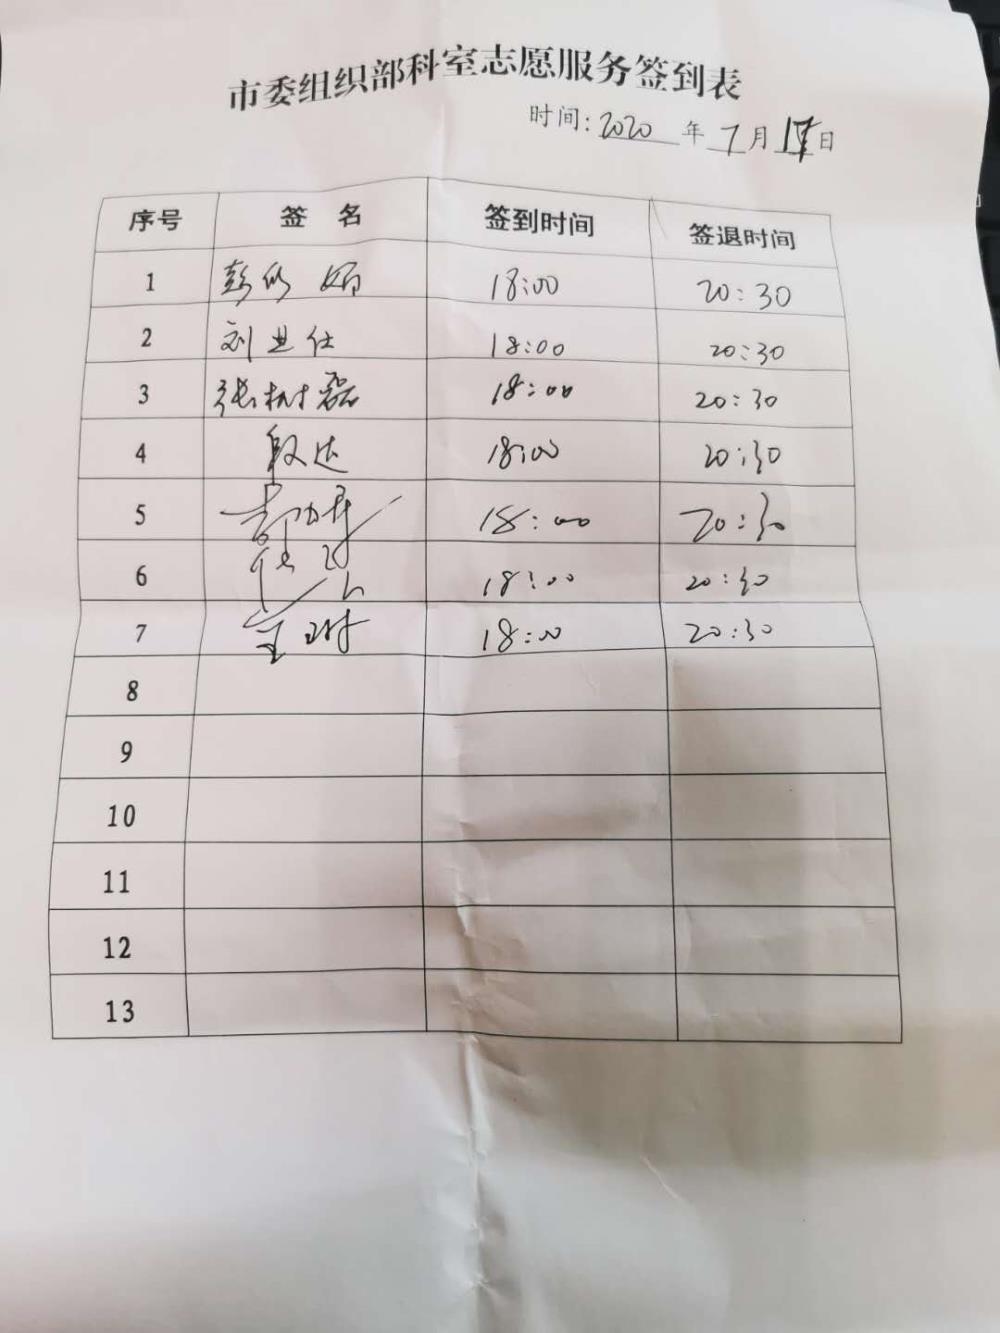 市委组织部科室志愿服务签到表
时间:2020年7月日
序号 签名 签到时间 签退时间
1 彭 18:00 20:30
2 刘业仕 18:00 20:30
3 张树磊 18:00 20:30
4 段达 18:00 20:30
5 18:00 20:30
6 18:00 20:30
7 王 18:00 20:30
8
9
10
11
12
13